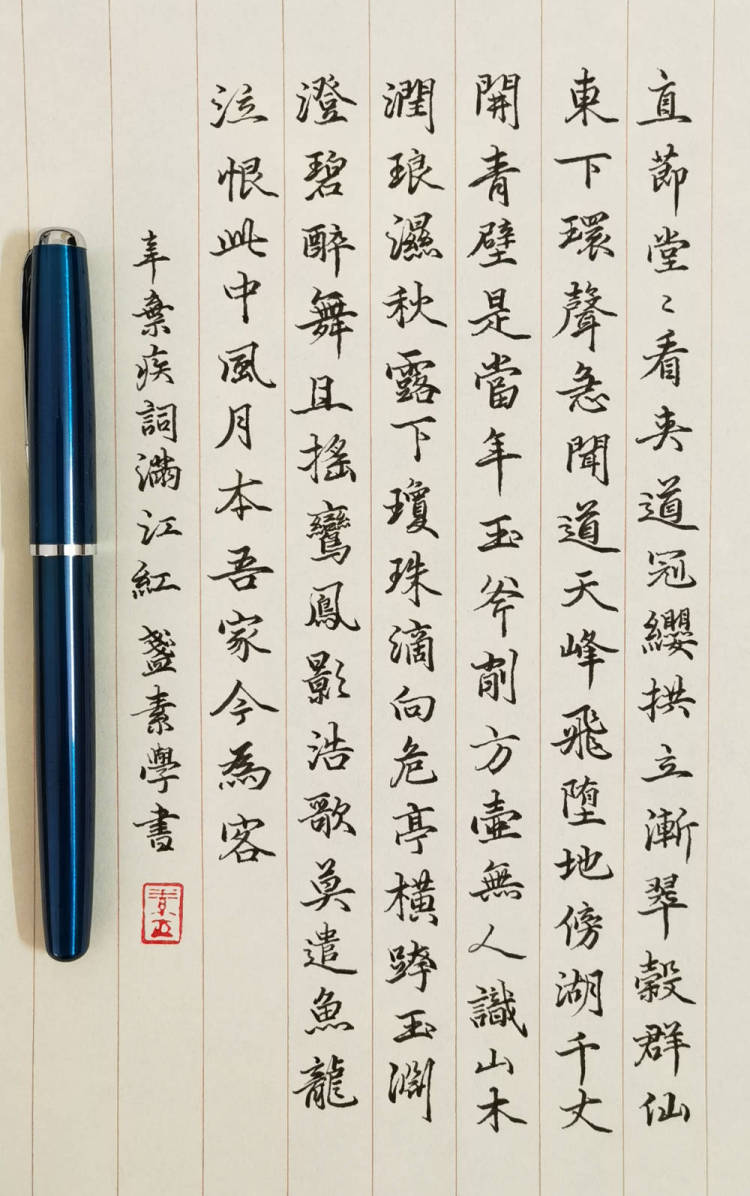 直節堂〻看夾道冠纓拱立漸翠縠群仙
東下環聲急聞道天峰飛墮地傍湖千丈
開青壁是當年玉斧削方壺無人識山木
潤琅濕秋露下瓊珠滴向危亭橫跨玉淵
澄碧醉舞且搖鸞鳳影浩歌莫遣魚龍
泣恨此中風月本吾家今為客
辛棄疾詞滿江紅盞素學書